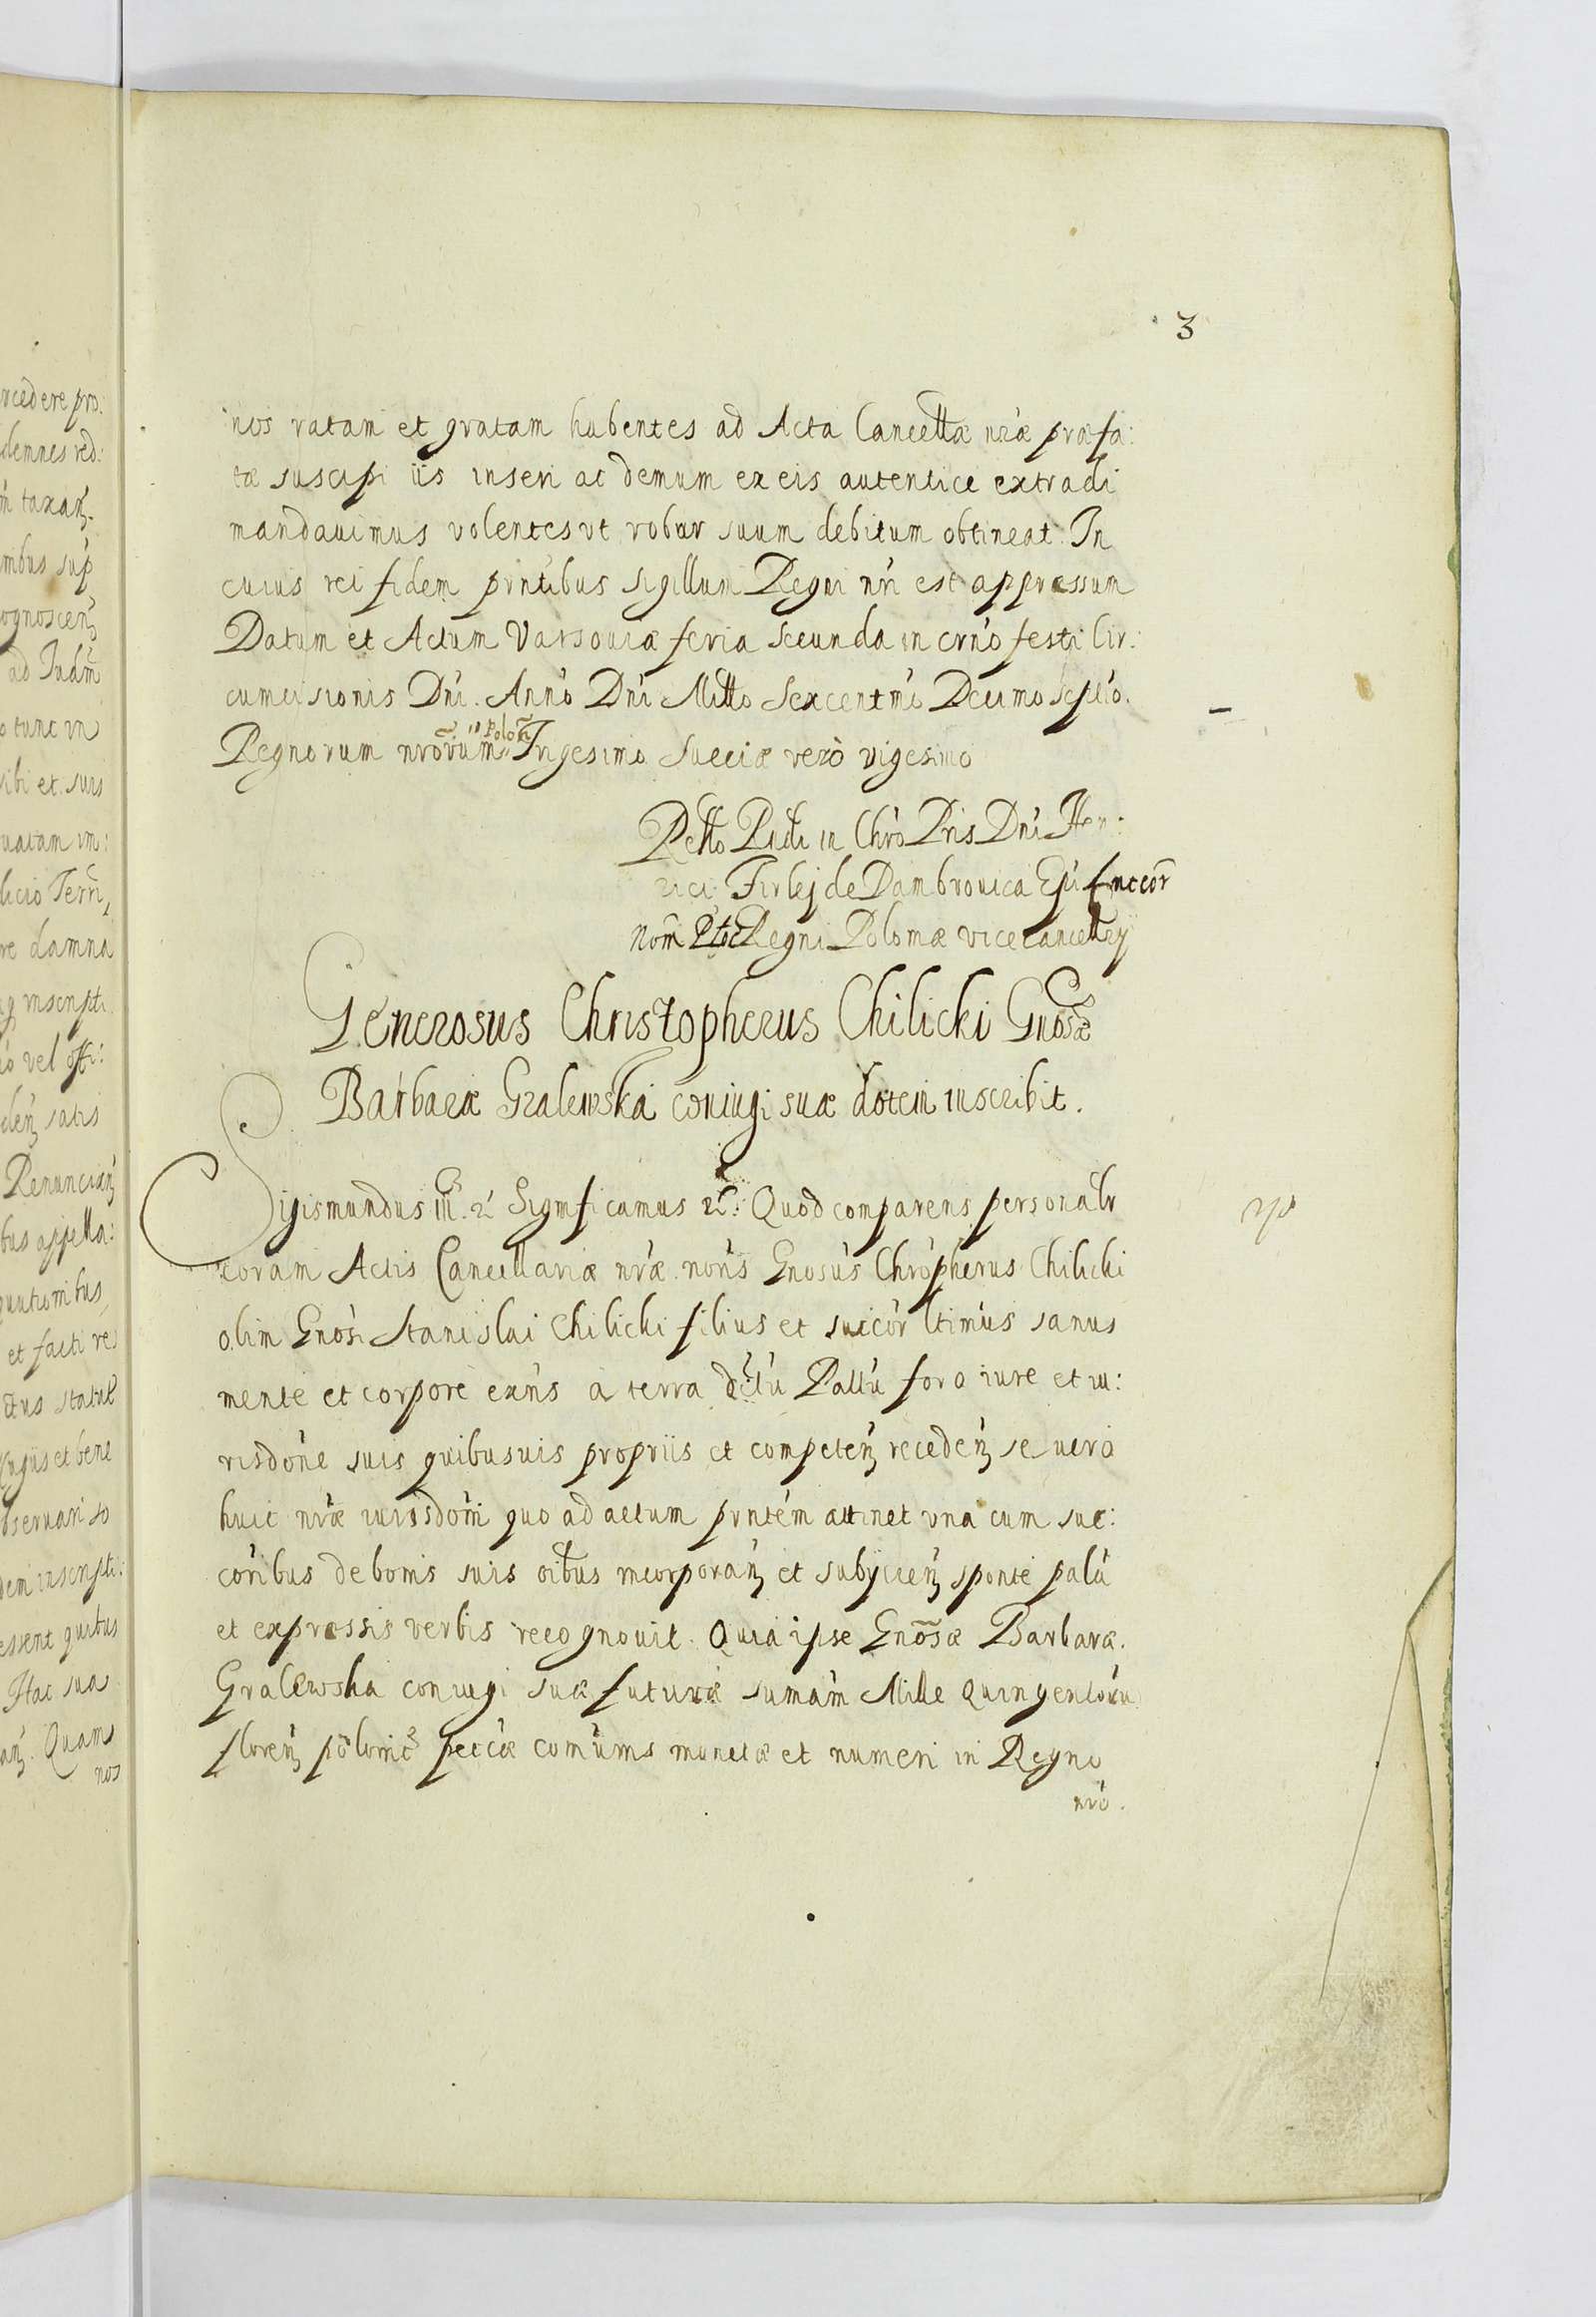 3
nos ratam et gratam habentes ad Acta Cancellæ nr̃æ præfa:
tæ suscipi iis inseri ac demum ex eis autentice extradi
mandauimus volentes vt robur suum debitum obtineat. In
cuius rei fidem pr̃ntibus sigillum Regni nr̃i est appressum
Datum et Actum Varsouiæ feria secunda in cr̃no festi Cir:
cumcisionis Dn̓i. Anno Dn̓i Millo Sexcentm̓o Decimo septi̓o.
Regnorum nr̓orum Polon̄ Trigesimo Sueciæ verò vigesimo
Rel̃lo Rn̓di in Chr̓o Pris Dn̓i Hen:
rici Firlej de Dambrouica Ep̓i Luceor̃
Nom̃ Regni Poloniæ vicecancellrij
Generosus Christopherus Chilicki Gnosæ
Barbaræ Gralewska coniugi suæ dotem inscribit.
Sigismundus III. 2̓ Significamus 2̓: Quod comparens personalr
coram Actis Cancellariæ nr̓æ nor̓is Gnosus Chr̓opherus Chilicki
olim Gnosi Stanislai Chilicki filius et succor̓ ltimus sanus
mente et corpore exn̓s à terra Pallu̓ foro iure et iu:
risdon̓e suis quibusuis propriis et competen̓ recedens̓ se vero
huic nr̓æ iurisdon̓i quo ad actum prn̓tem attinet vna cum suc:
cor̓ibus de bonis suis oib̓us incorporan̓ et subijcien̓ sponte palu̓
et expressis verbis recognouit. Quia ipse Gnõsæ Barbaræ
Gralewska coniugi suæ futuræ sumam̓ Mille Quingentoru̓
floren̓ põlonic̓ pecc̓æ comun̓is monetæ et numeri in Regno
nr̓o.